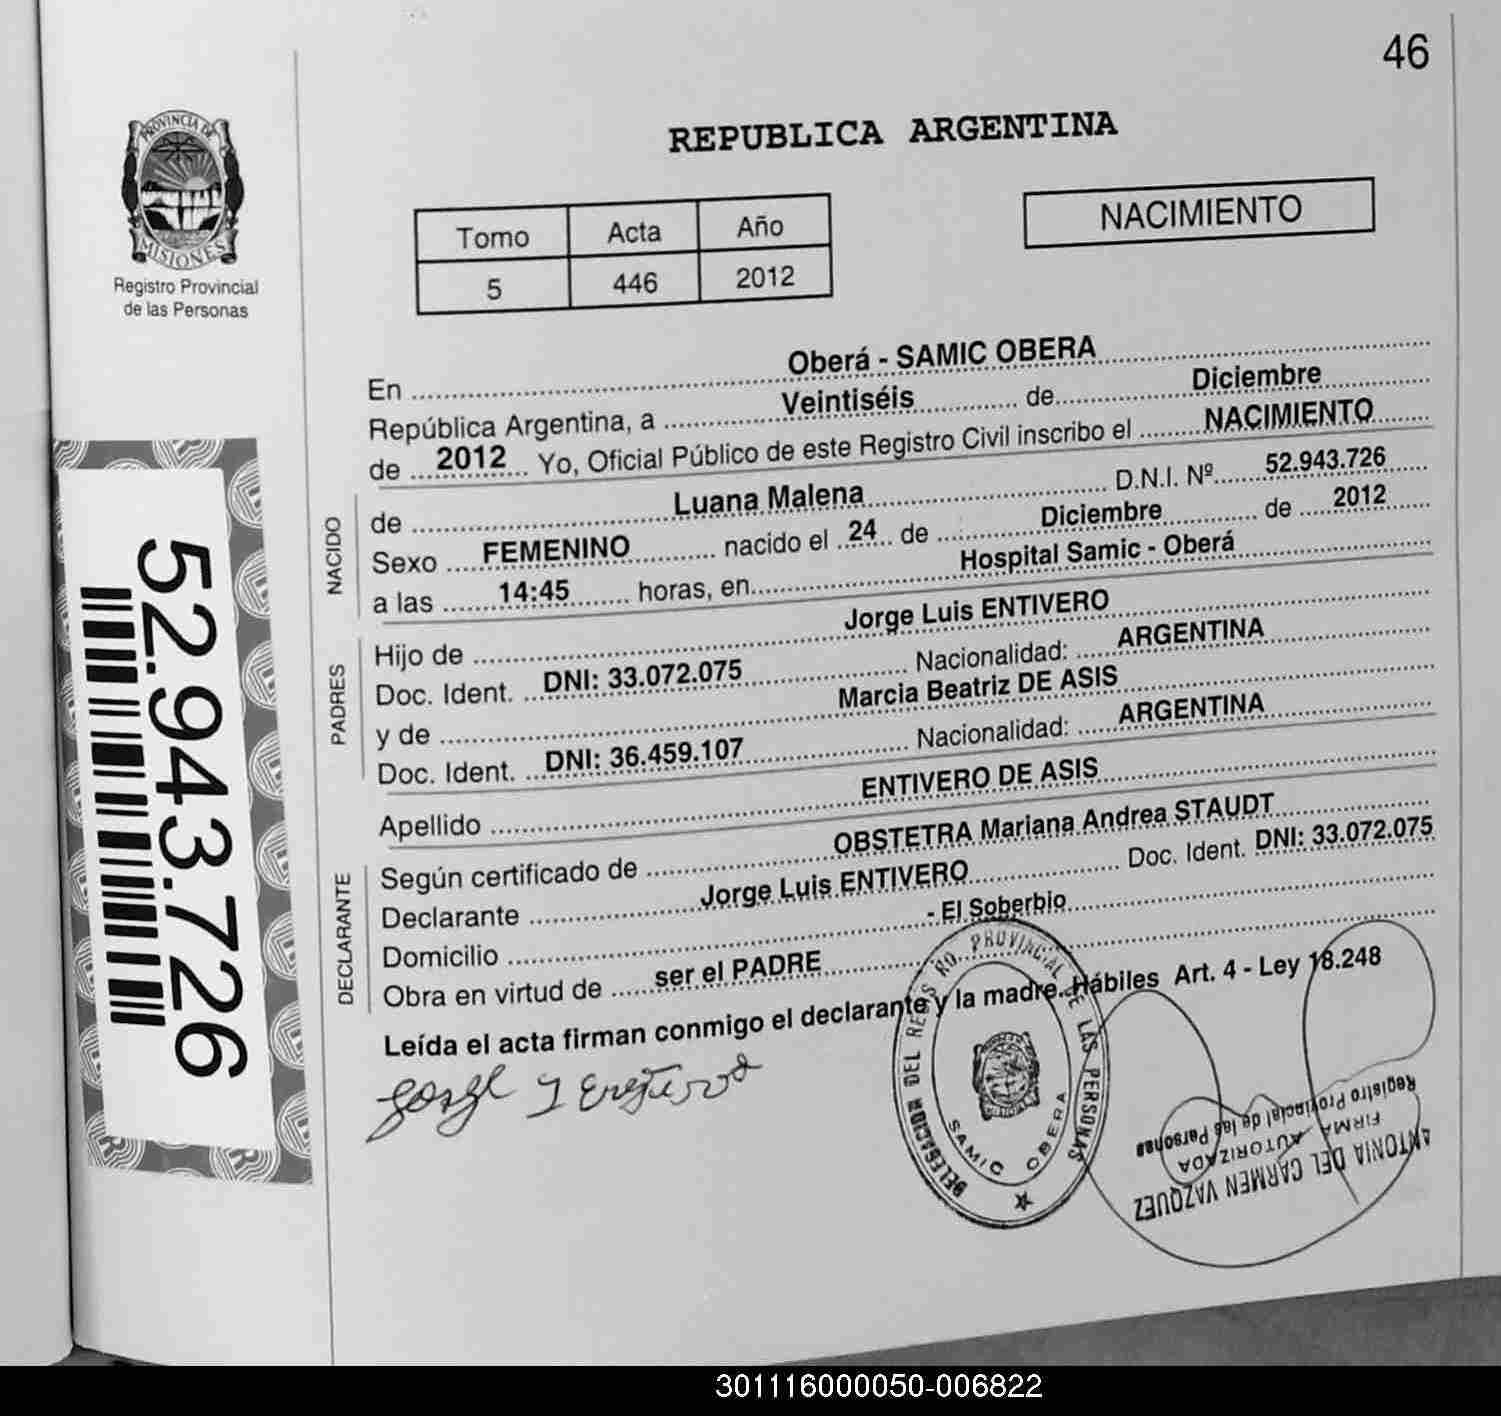 46
PROVINCIA DE
MISIONES
Registro Provincial
de las Personas
REPUBLICA ARGENTINA
Tomo Acta Año
5 446 2012
NACIMIENTO
En Oberá - SAMIC OBERA
República Argentina, a Veintiséis de Diciembre
de 2012 Yo, Oficial Público de este Registro Civil inscribo el NACIMIENTO
NACIDO
de Luana Malena D.N.I. Nº 52.943.726
Sexo FEMENINO nacido el 24 de Diciembre de 2012
a las 14:45 horas, en Hospital Samic - Oberá
PADRES
Hijo de Jorge Luis ENTIVERO
Doc. Ident. DNI: 33.072.075 Nacionalidad: ARGENTINA
y de Marcia Beatriz DE ASIS
Doc. Ident. DNI: 36.459.107 Nacionalidad: ARGENTINA
Apellido ENTIVERO DE ASIS
DECLARANTE
Según certificado de OBSTETRA Mariana Andrea STAUDT
Declarante Jorge Luis ENTIVERO Doc. Ident. DNI: 33.072.075
Domicilio - El Soberbio
Obra en virtud de ser el PADRE
Leída el acta firman conmigo el declarante y la madre. Hábiles Art. 4 - Ley 18.248
Jorge L Entivero
DELEGACION DEL REGIS RO. PROVINCIAL DE LAS PERSONAS
SAMIC OBERA
MISIONES
ANTONIA DEL CARMEN VAZQUEZ
FIRMA AUTORIZADA
Registro Provincial de las Personas
52.943.726
301116000050-006822